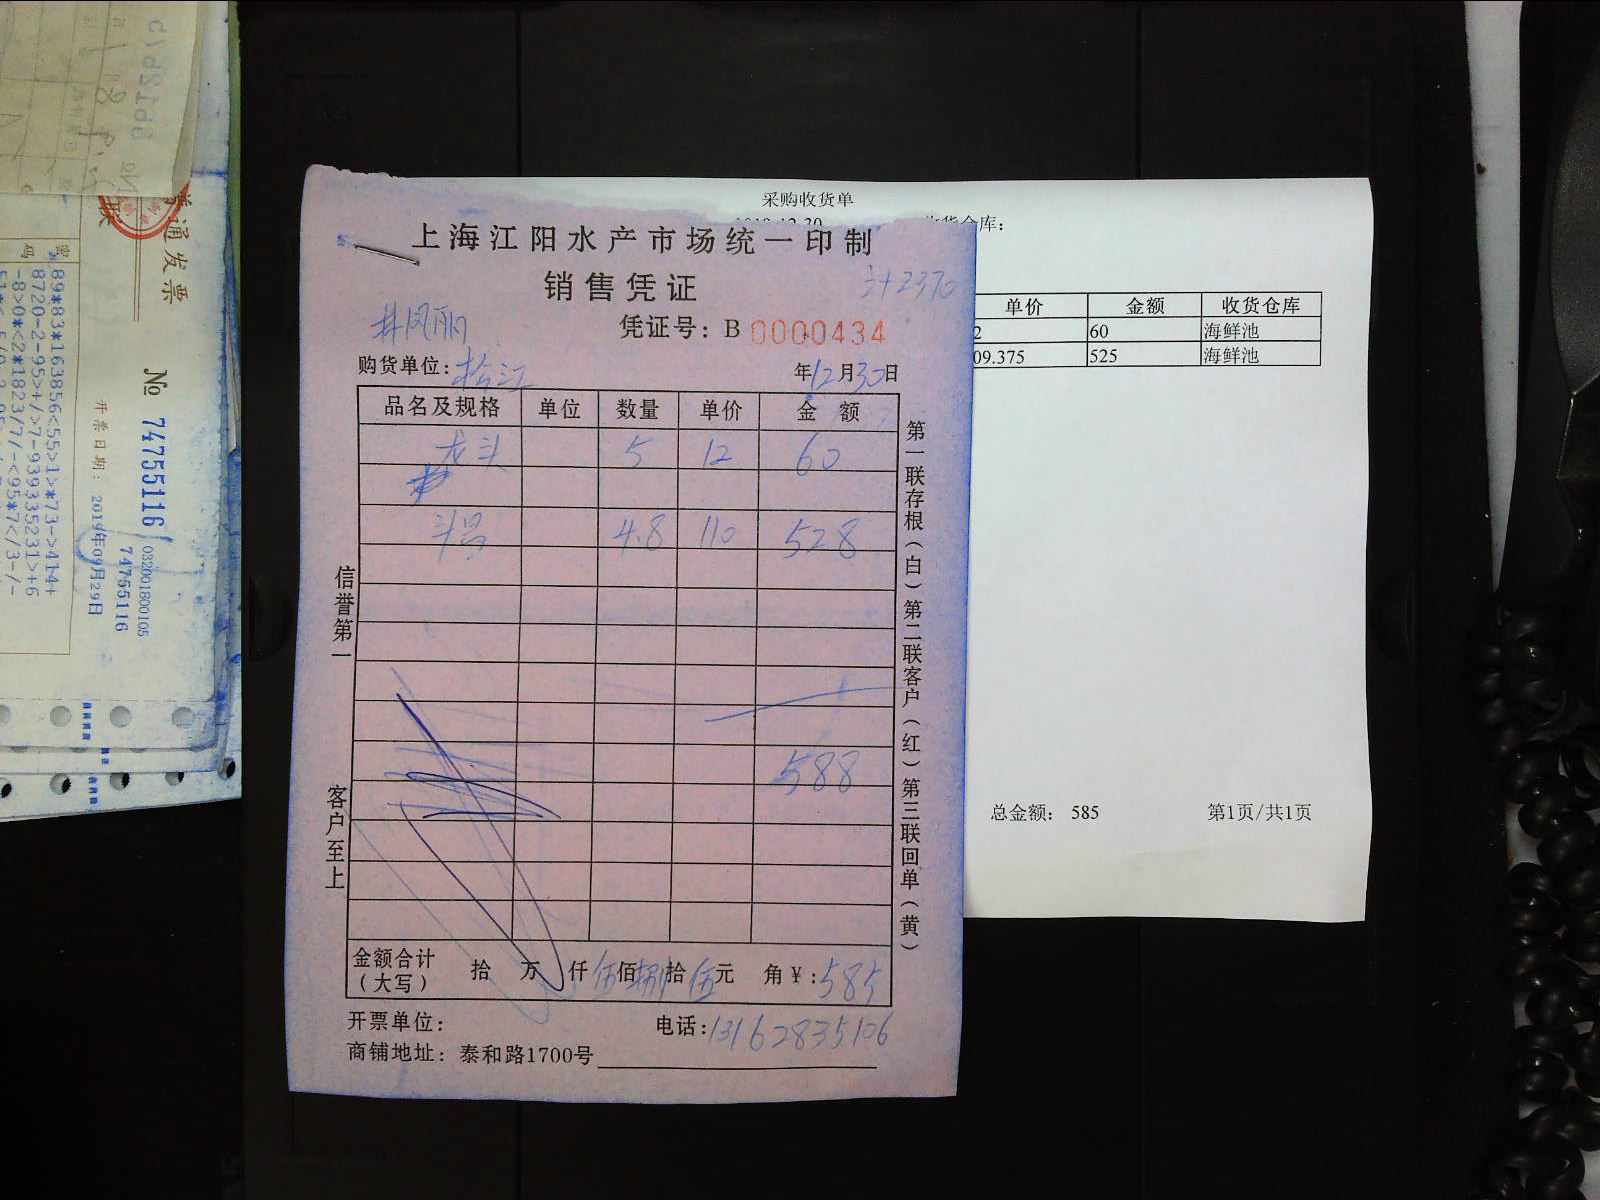 采购收货单
上海江阳水产市场统一印制
销售凭证
凭证号: B 0000434
购货单位: 松江
年12月30日
品名及规格 单位 数量 单价 金额
龙头 5 12 60
4.8 110 528
588
金额合计(大写) 拾 万 仟 伍佰捌拾伍元 角 ¥: 585
开票单位:
电话: 13162835106
商铺地址: 泰和路1700号
信誉第一
客户至上
第一联存根(白)第二联客户(红)第三联回单(黄)
单价 金额 收货仓库
60 海鲜池
09.375 525 海鲜池
总金额: 585 第1页/共1页
普通发票
№ 74755116
032001800105
74755116
开票日期: 2019年09月29日
89*83*163856<55>1>*73->414+
8720-2-95>+/>7-939335231>+6
-8>0*<2*1823/7/-<95*7</3-/-